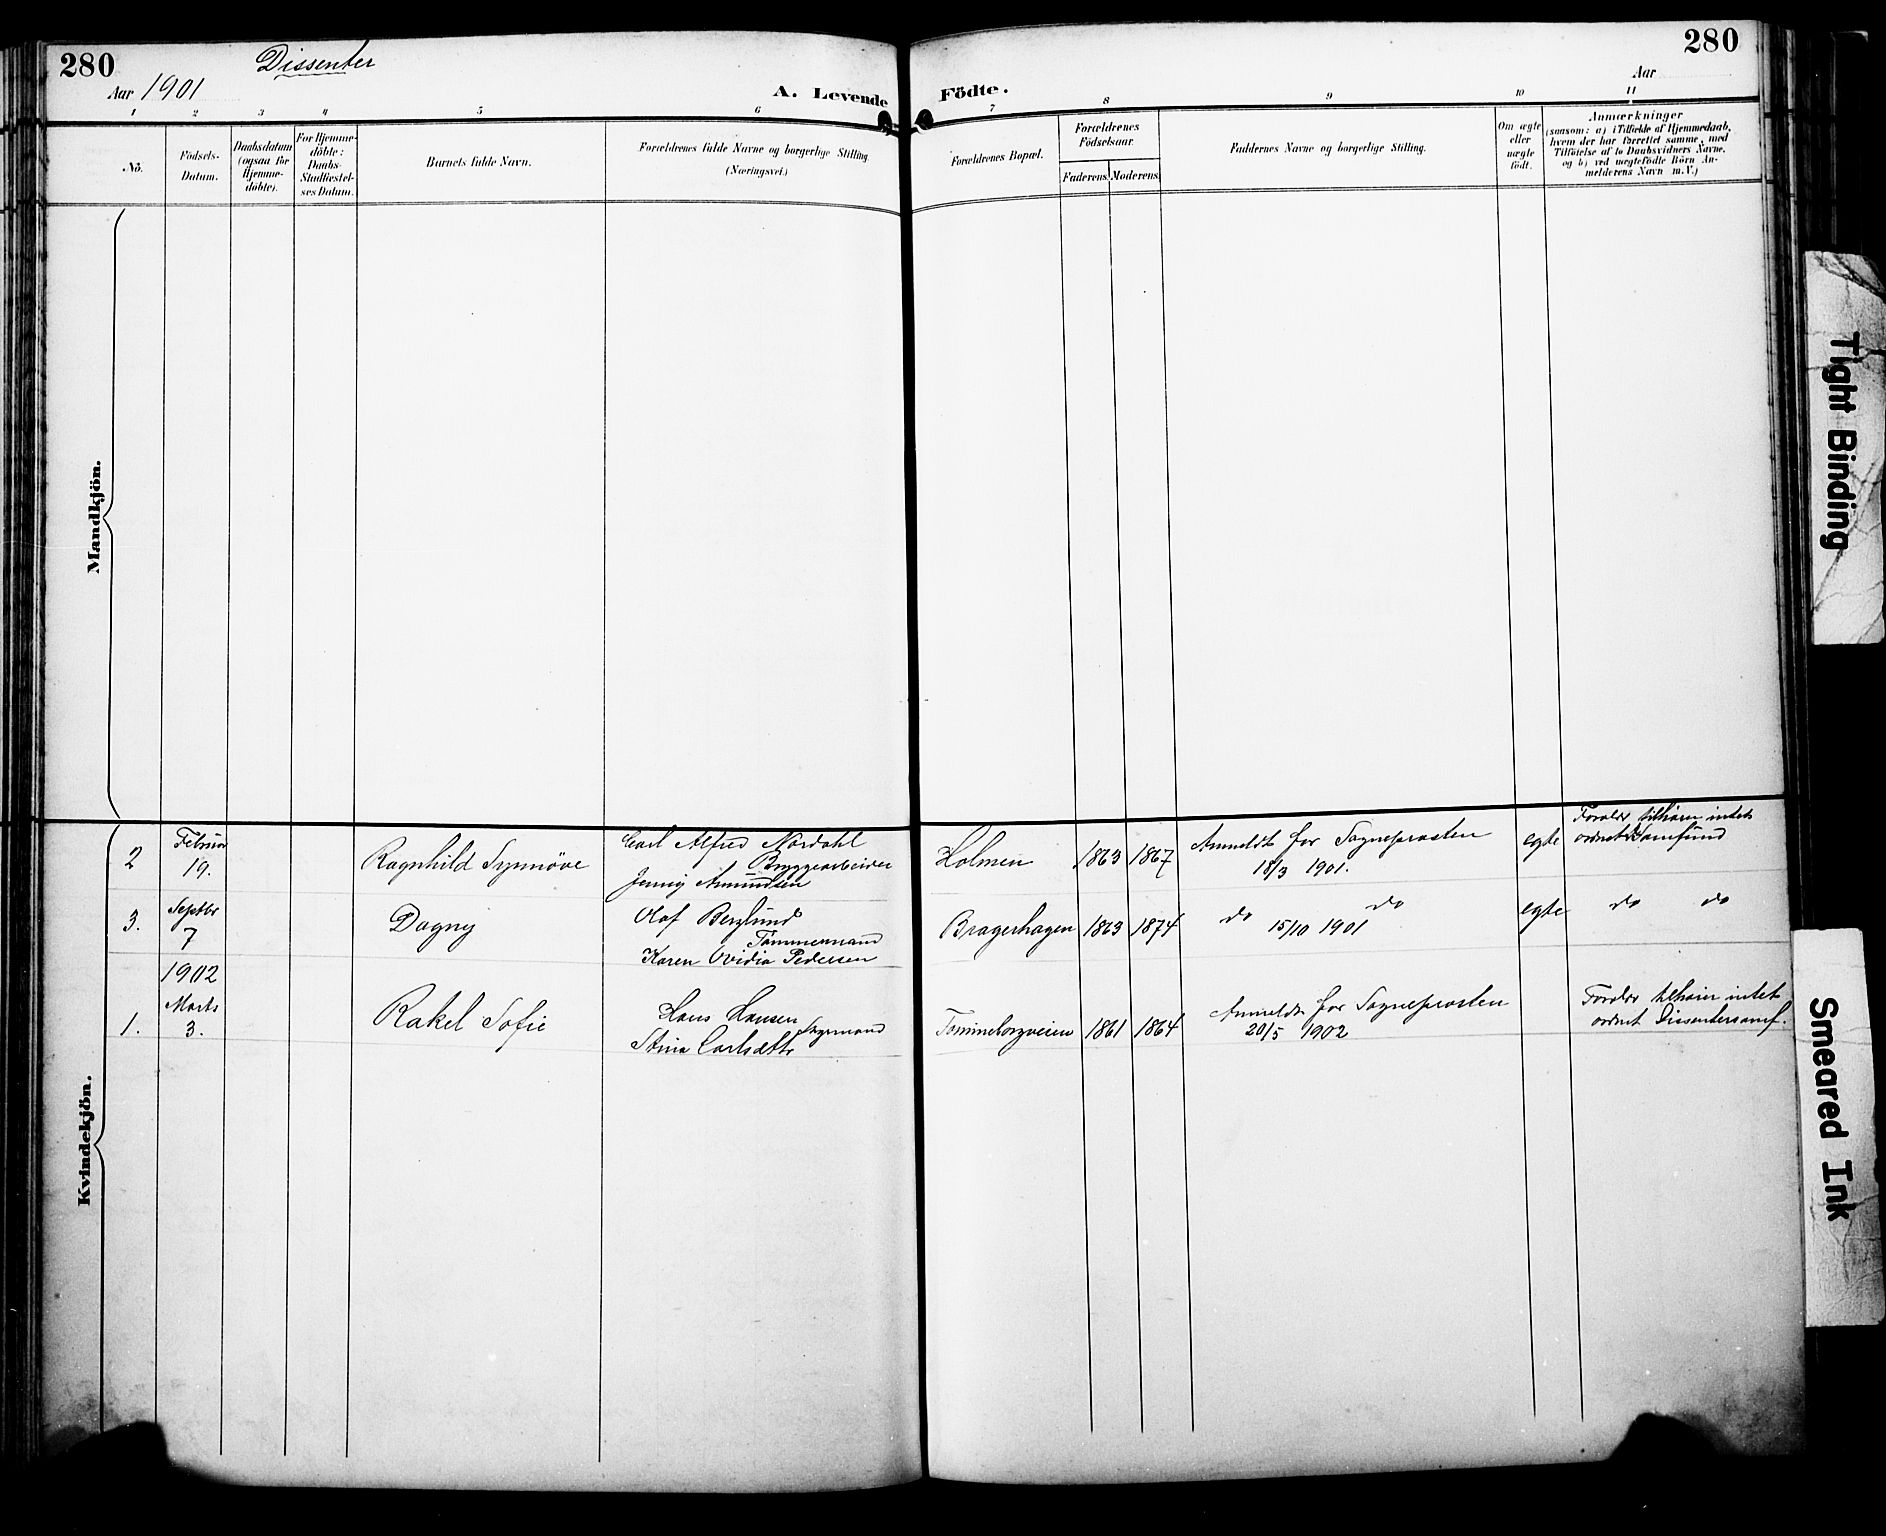 280
Dissenter
280
Aar 1901
A. Levende
Födte.
Aar
1 2 3 4 5 6 7 8 9 10 11
No.
Födsels-
Datum.
Daabsdatum
(ogsaa for
Hjemme-
döbte).
For Hjemme-
döbte:
Daabs-
Stadfæstel-
ses Datum.
Barnets fulde Navn.
Forældrenes fulde Navne og borgerlige Stilling.
(Næringsvei.)
Forældrenes Bopæl.
Forældrenes
Födselsaar.
Faderens. Moderens.
Faddernes Navne og borgerlige Stilling.
Om ægte
eller
uægte
födt.
Anmærkninger
(saasom: a) i Tilfælde af Hjemmedaab,
hvem der har forrettet samme, med
Tilföielse af to Daabsvidners Navne,
og b) ved uægtefödte Börn An-
melderens Navn m.V.)
Mandkjön.
Kvindekjön.
2
Februar
19.
Ragnhild Synnöve
Carl Alfred Nordahl
Bryggearbeider
Jenny Amundsen
Holmen
1863
1867
Anmeldt for Sogneprosten
18/3 1901.
egte
Foreldr tilhörer intet
ordnet Samfund
3.
Septbr
7
Dagny
Olaf Berglund
Tömmermand
Karen Ovidia Pedersen
Bragerhagen
1863
1874
do do
15/10 1901
egte
do do
1902
1.
Marts
3.
Rakel Sofie
Hans Hansen
Sagmand
Stina Carlsdttr
Tømmeborgveien
1861
1864
Anmeldt for Sogneprosten
20/5 1902
Foreldr tilhører intet
ordnet Dissentersamf.
Tight Binding
Smeared Ink